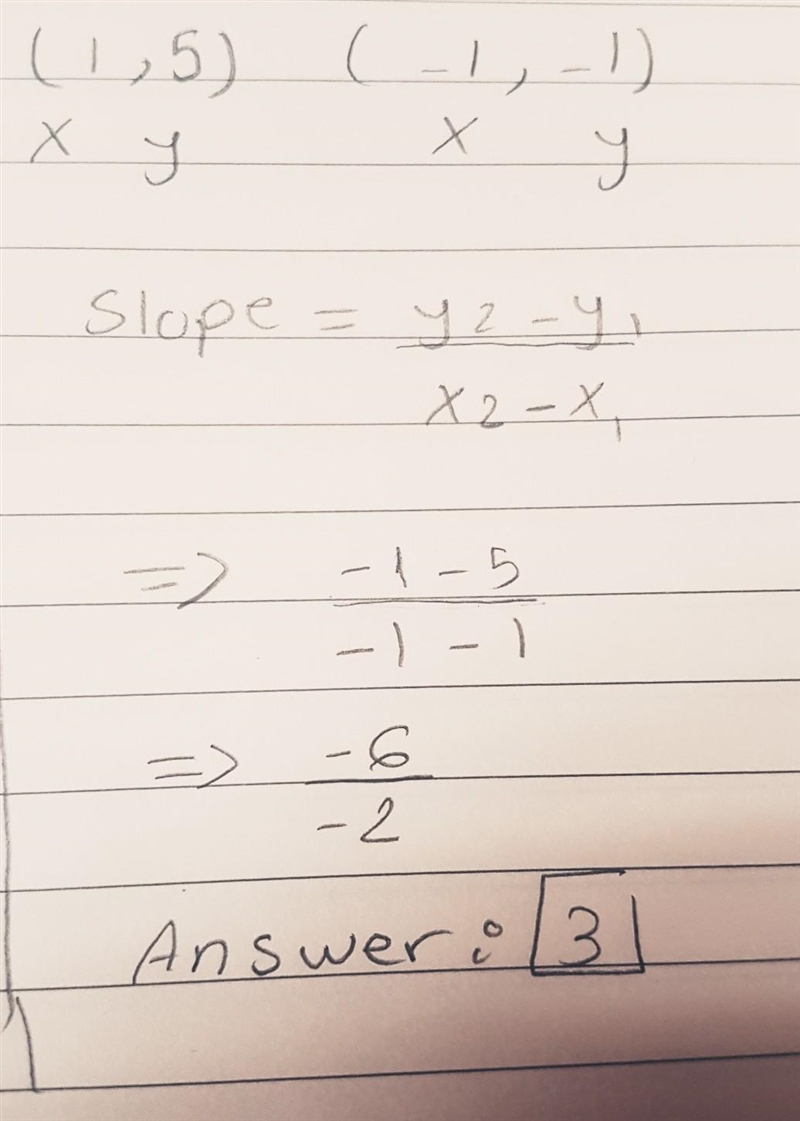 (1, 5) (-1, -1)
x y x y
Slope = y2 - y1
x2 - x1
=> -1 - 5
-1 - 1
=> -6
-2
Answer: 3